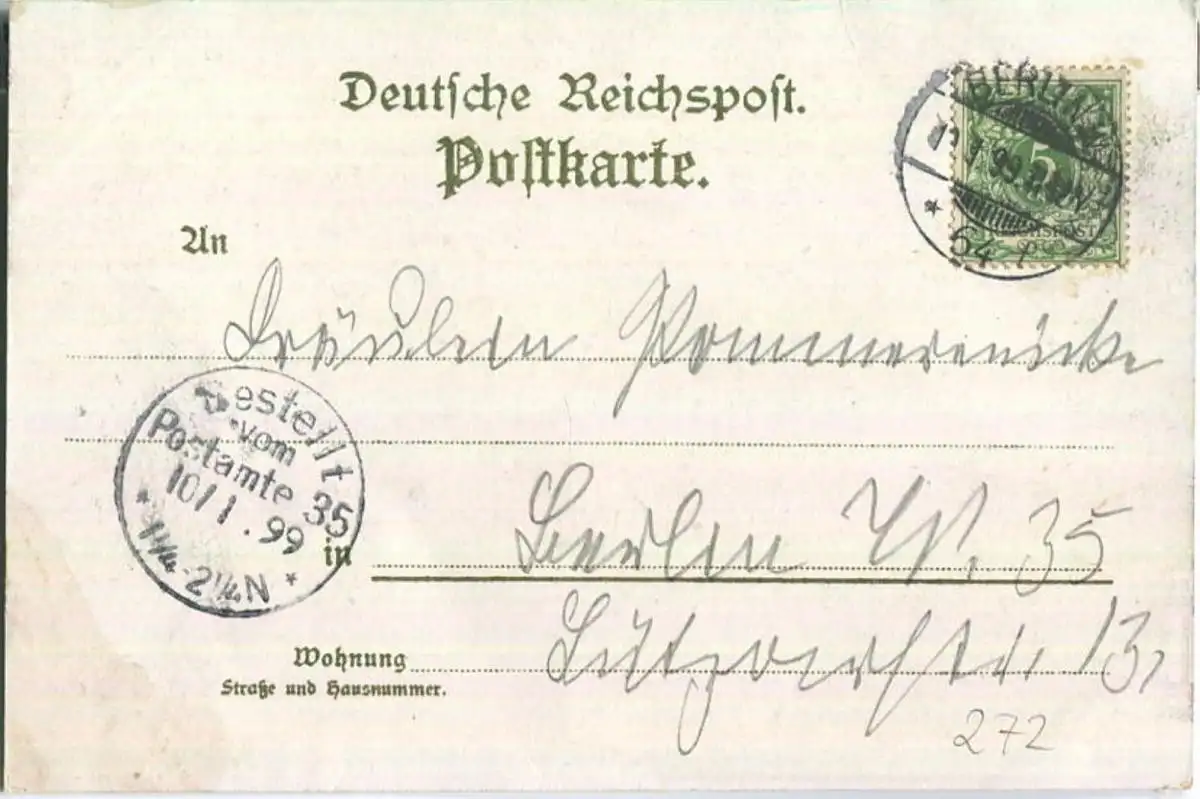 Deutsche Reichspost.
Postkarte.
BERLIN
99
64
5
REICHSPOST
An
Fräulein
Bestellt
vom
Postamte 35
10/1.99
* 1¼-2¼N *
in Berlin W. 35
Wohnung Lützowstr. 13,
Straße und Hausnummer.
272